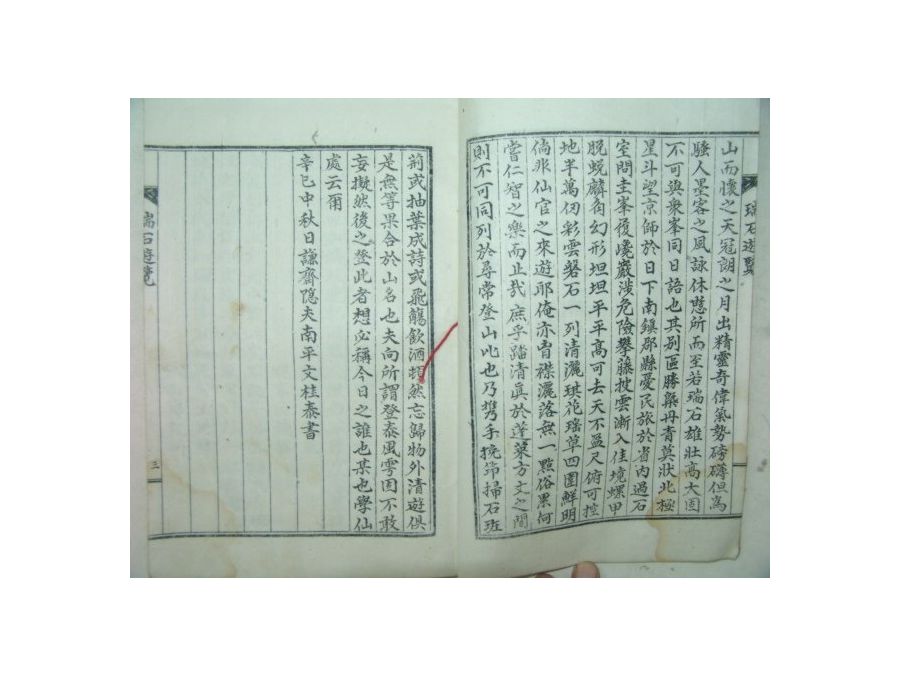 瑞石遊覽
山而懷之天冠朗之月出精靈奇偉氣勢磅礴但爲
騷人墨客之風詠休憇所而至若瑞石雄壯高大固
不可與衆峯同日語也其別區勝槩丹青莫狀北極
星斗望京師於日下南鎭郡縣憂民旅於省內過石
室問圭峯後巉巖涉危險攀藤披雲漸入佳境螺甲
脫蛻麟角幻形坦坦平平高可去天不盈尺俯可控
地半萬仞彩雲磐石一列清灑琪花瑤草四圍鮮明
倘非仙官之來遊耶俺亦胷襟灑落無一點俗累何
嘗仁智之樂而止哉庶乎踏清眞於蓬萊方丈之間
則不可同列於尋常登山比也乃携手挽筇掃石班
荊或抽葉成詩或飛觴飮酒頹然忘歸物外清遊俱
是無等果合於山名也夫向所謂登泰風雩固不敢
妄擬然後之登此者想必稱今日之誰也某也學仙
處云爾
辛巳中秋日謙齋隱夫南平文桂泰書
瑞石遊覽
三